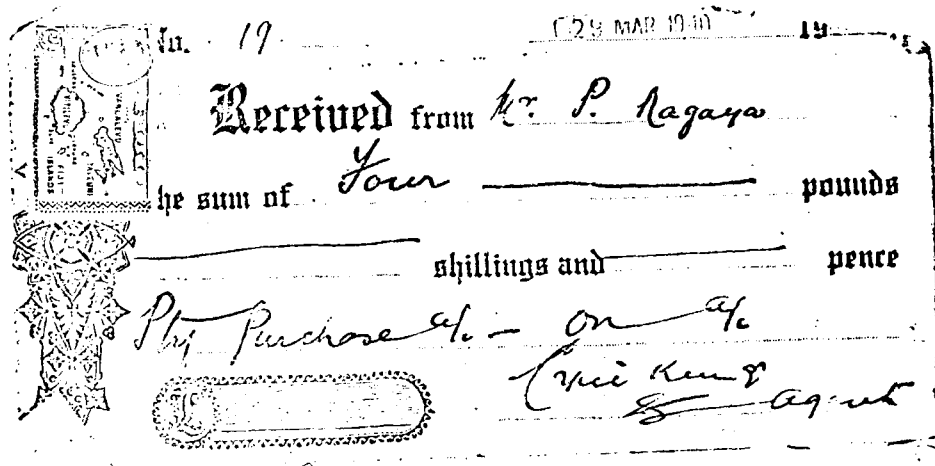 No. 19 29 MAR 1940 19
Received from Mr. P. Nagaya
the sum of Four pounds
shillings and pence
Purchase a/c – on a/c
Agent